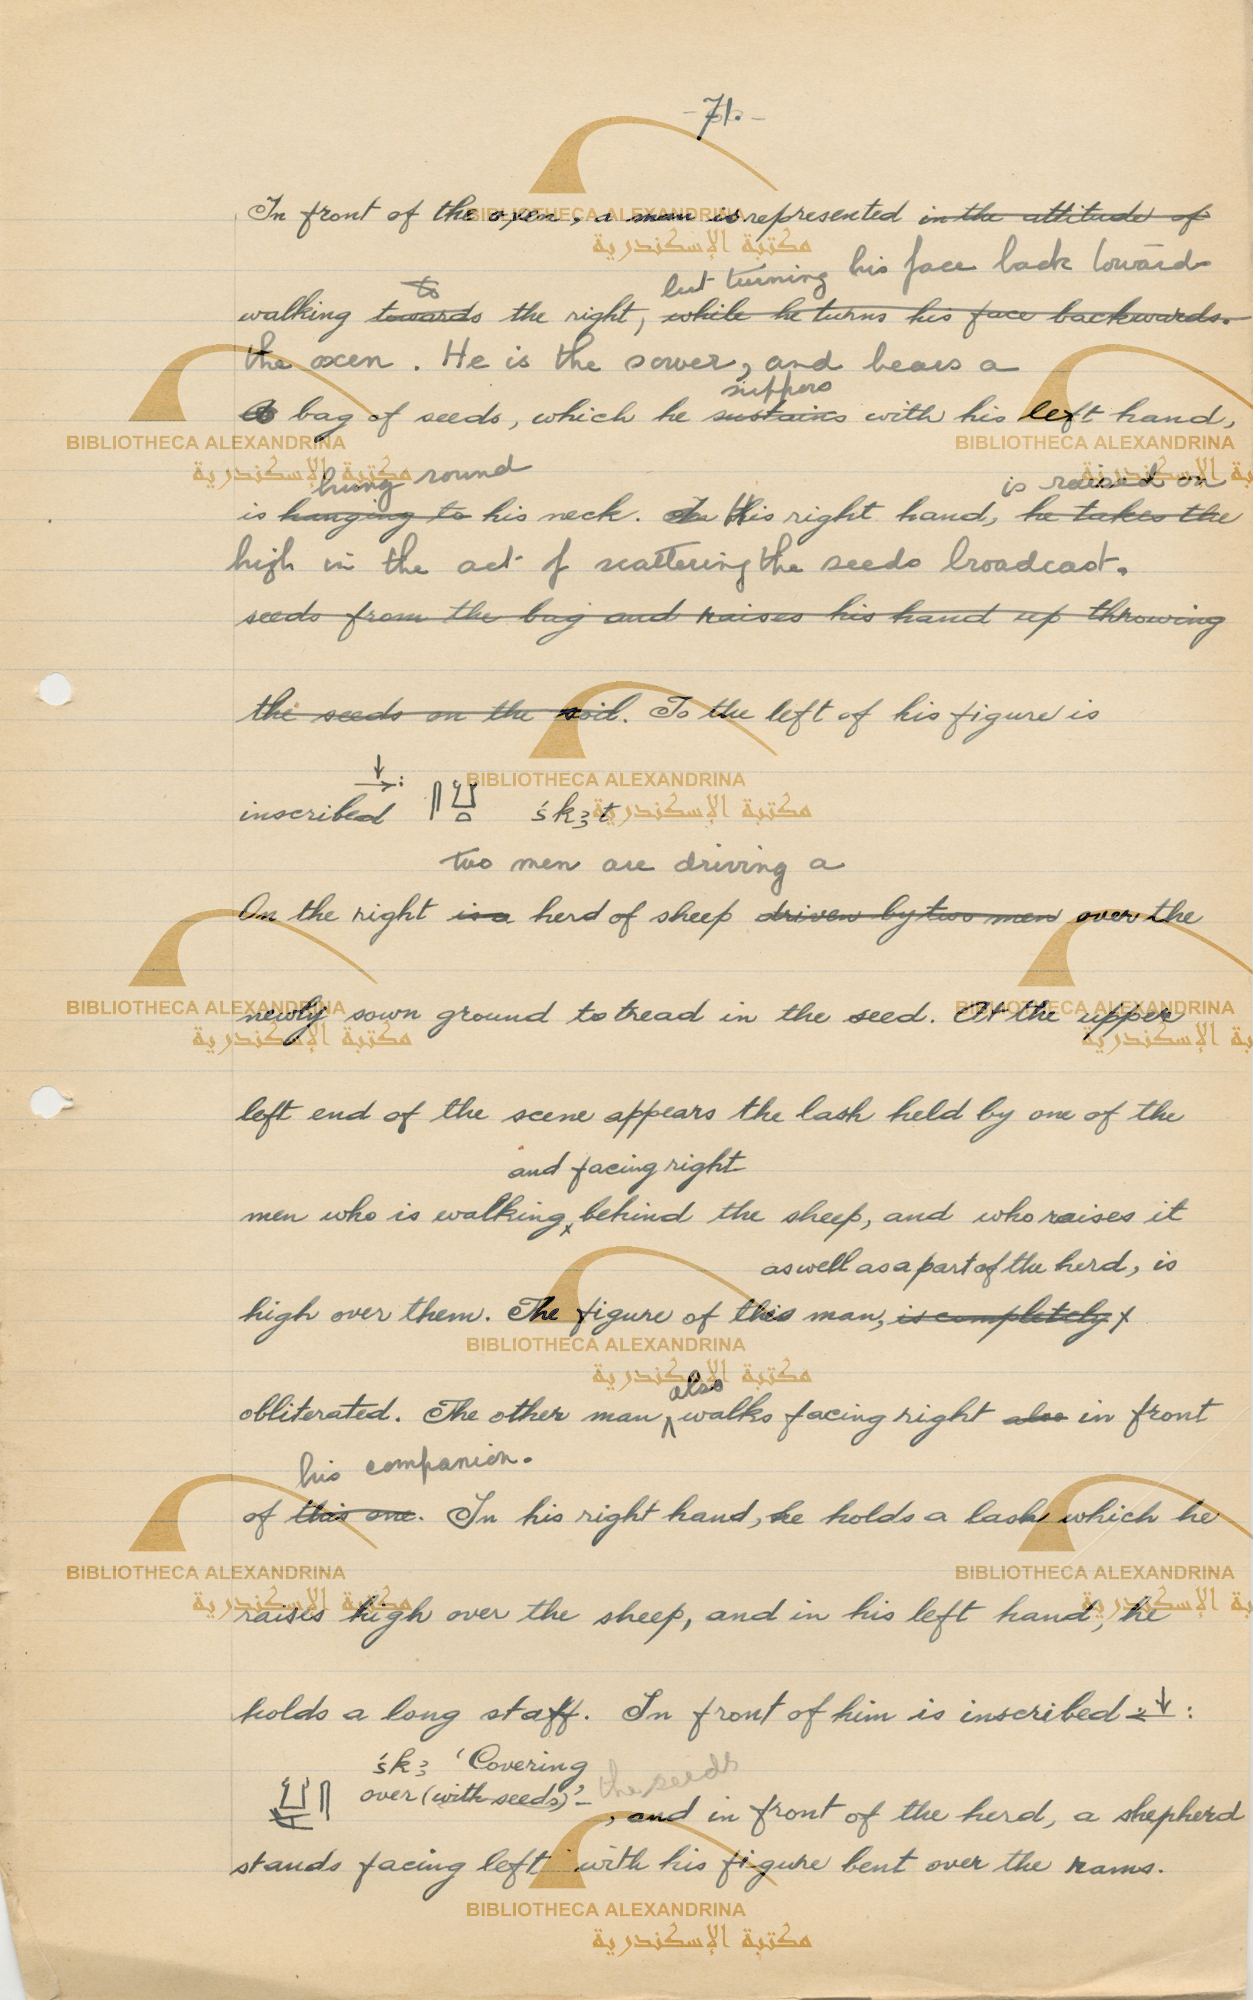 -71.-
In front of the oxen, a man is represented in the attitude of
but turning his face back toward
to
walking towards the right, while he turns his face backwards.
the oxen. He is the sower, and bears a
suppors
bag of seeds, which he sustains with his left hand,
hung round
is raised on
is hanging to his neck. His right hand, he takes the
high in the act of scattering the seeds broadcast.
seeds from the bag and raises his hand up throwing
the seeds on the soil. To the left of his figure is
inscribed ↓→: 𓋴𓂓𓏏 śkꜣt
two men are driving a
On the right is a herd of sheep driven by two men over the
newly sown ground to tread in the seed. At the upper
left end of the scene appears the lash held by one of the
and facing right
men who is walking, behind the sheep, and who raises it
as well as a part of the herd, is
high over them. The figure of this man, is completely x
also
obliterated. The other man walks facing right also in front
his companion.
of this one. In his right hand, he holds a lash which he
raises high over the sheep, and in his left hand, he
holds a long staff. In front of him is inscribed ←↓:
śkꜣ 'Covering
over (with seeds)'- the seeds
𓂓𓋴 , and in front of the herd, a shepherd
stands facing left with his figure bent over the rams.
BIBLIOTHECA ALEXANDRINA
مكتبة الإسكندرية